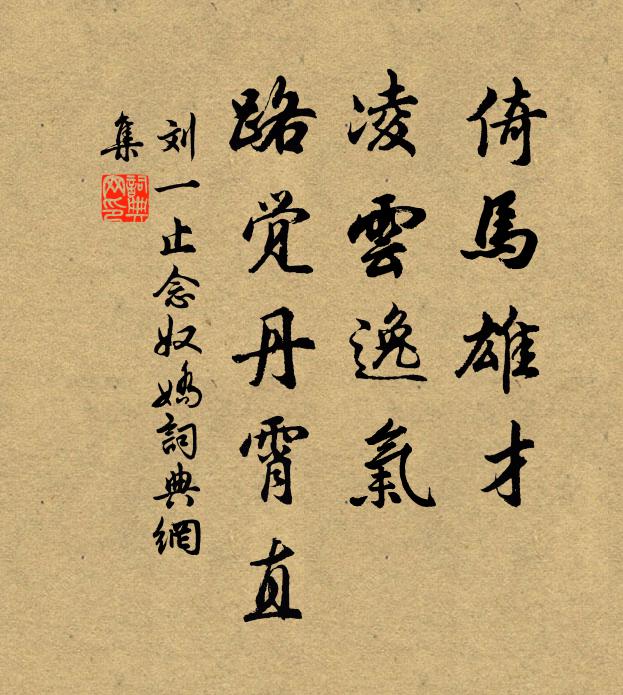 倚馬雄才
凌雲逸氣
路觉丹霄直
刘一止念奴嬌詞典網
集
詞典
网印